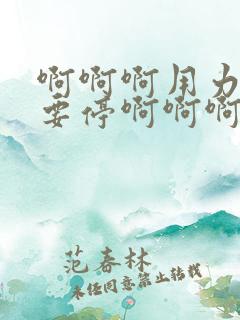 啊啊啊用力
要停啊啊啊
范春林
未经同意禁止转载